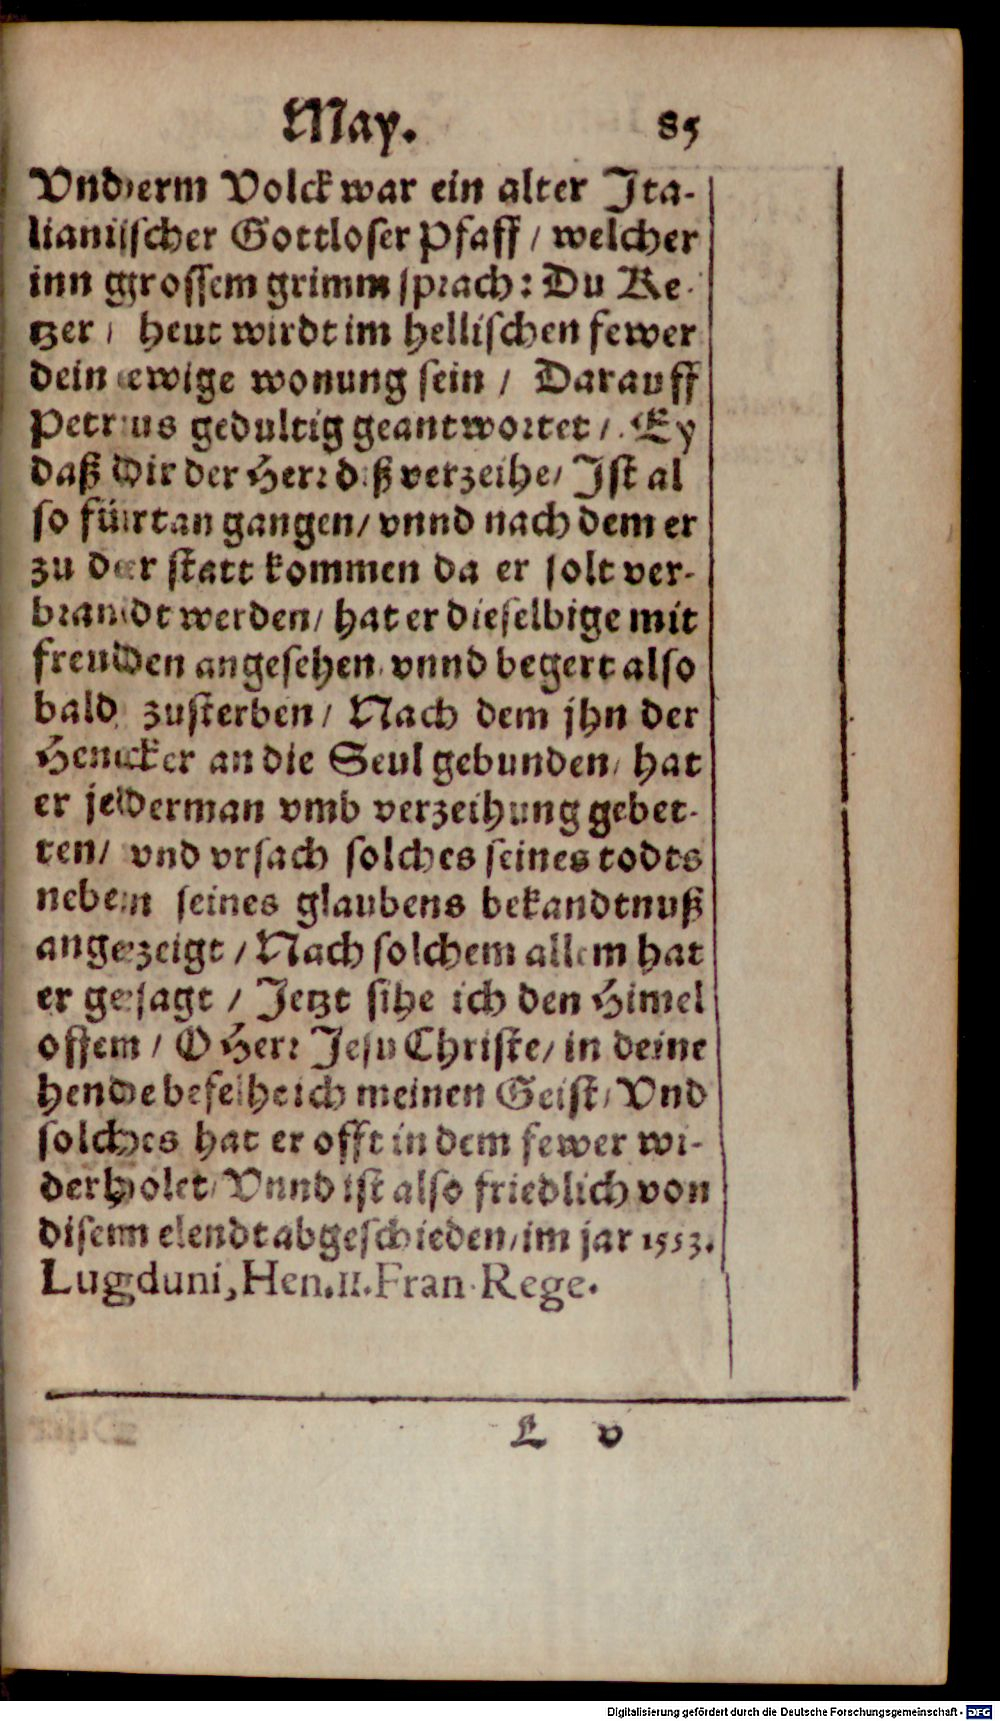 May. 85
Vnderm Volck war ein alter Ita-
lianischer Gottloser Pfaff / welcher
inn grossem grimm sprach: Du Ke-
tzer / heut wirdt im hellischen fewer
dein ewige wonung sein / Darauff
Petrus gedultig geantwortet / Ey
daß dir der Herr diß verzeihe / Ist al
so fürtan gangen / vnnd nach dem er
zu der statt kommen da er solt ver-
brandt werden / hat er dieselbige mit
freuden angesehen / vnnd begert also
bald zusterben / Nach dem jhn der
Hencker an die Seul gebunden / hat
er jederman vmb verzeihung gebet-
ten / vnd vrsach solches seines todts
neben seines glaubens bekandtnuß
angezeigt / Nach solchem allem hat
er gesagt / Jetzt sihe ich den Himel
offem / O Herr Jesu Christe / in deine
hende befelhe ich meinen Geist / Vnd
solches hat er offt in dem fewer wi-
derholet / Vnnd ist also friedlich von
disem elendt abgeschieden / im jar 1553.
Lugduni, Hen. II. Fran. Rege.
L v
Digitalisierung gefördert durch die Deutsche Forschungsgemeinschaft - DFG